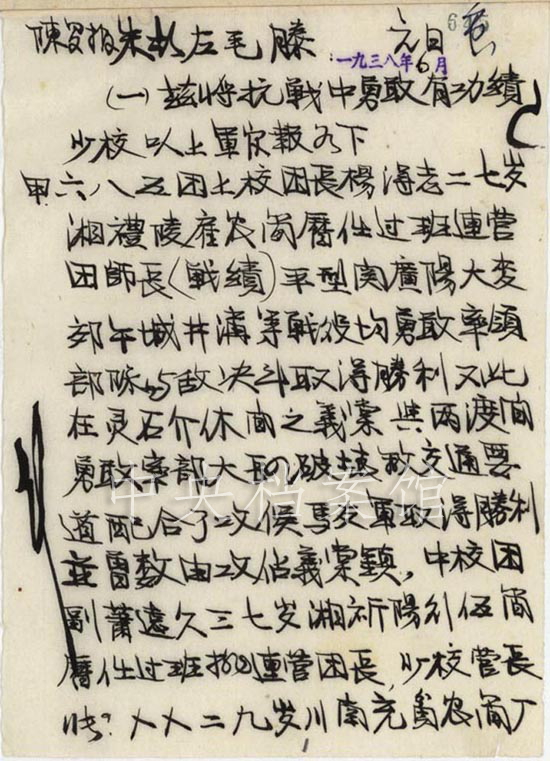 陳罗报朱彭左毛滕 元日
一九三八年6月
(一)茲将抗戰中勇敢有功績
少校以上軍官報如下
甲六八五团上校团長楊得志二七岁
湘禮陵産农简曆任过班連营
团師長(戰績)平型関廣陽大麦
郊午城井溝等戰役均勇敢率領
部隊与敌决斗取得勝利又此
在灵石介休间之義棠與两渡间
勇敢率部大胆破坏敌交通要
道配合了攻侯馬友軍取得勝利
並曾数由攻佔義棠鎮,中校团
副蕭遠久三七岁湘祈陽 伍简
曆任过班排連营团長,少校营長
?乂乂二九岁川南充 农简
中央档案馆